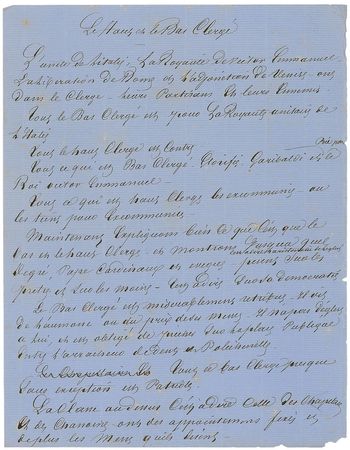 Le Haut et le Bas Clergé
L'unité de l'Italie, La Royauté de Victor Emmanuel
La libération de Rome et l'adjonction de Venise ont
Dans le Clergé leurs Partisans et leurs Ennemis.
Tout le Bas Clergé est pour La Royauté unitaire de
l'Italie
Tout le haut Clergé est Contre
Tout ce qui est Bas Clergé Glorifie Garibaldi et le
Roi Victor Emmanuel
Tout ce qui est haut Clergé les excommunie ou
les tient pour Excommuniés
Maintenant Expliquons bien Ce que C'est que le
bas et le haut Clergé et montrons jusqu'à quel
Degré, Pape Cardinaux et
prêtres et sur les moines C'en
Le Bas Clergé est misérablement retribué. Il vit
de l'aumône ou du prix des messes. Il n'a pas d'église
à lui, et est obligé de prier sur la place Publique
Entre l'arracheur de dents et Polichinelle.
Tout ce bas Clergé presque
Sans exception est Patriote
La Classe au dessus C'est à dire Celle des Chapelains
et des Chanoines ont des appointemens fixes et
de plus les Messes qu'ils disent